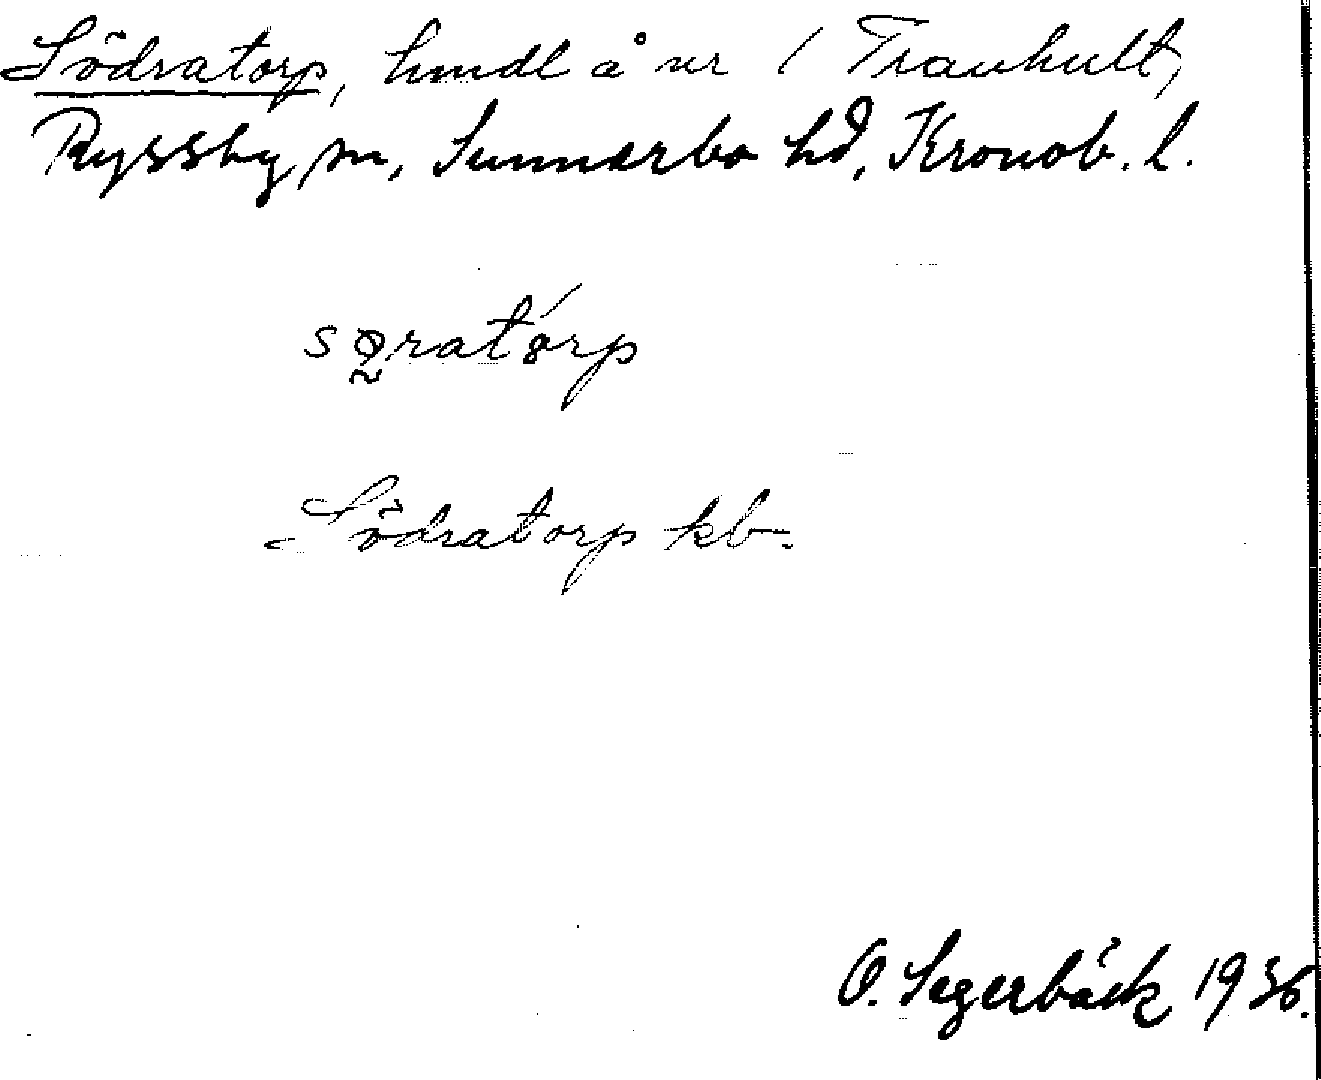 Södratorp, hmdl å nr 1 Tranhult,
Ryssby sn, Sunnerbo hd, Kronob. l.
Södratorp kb.
O. Segerbäck 1936.